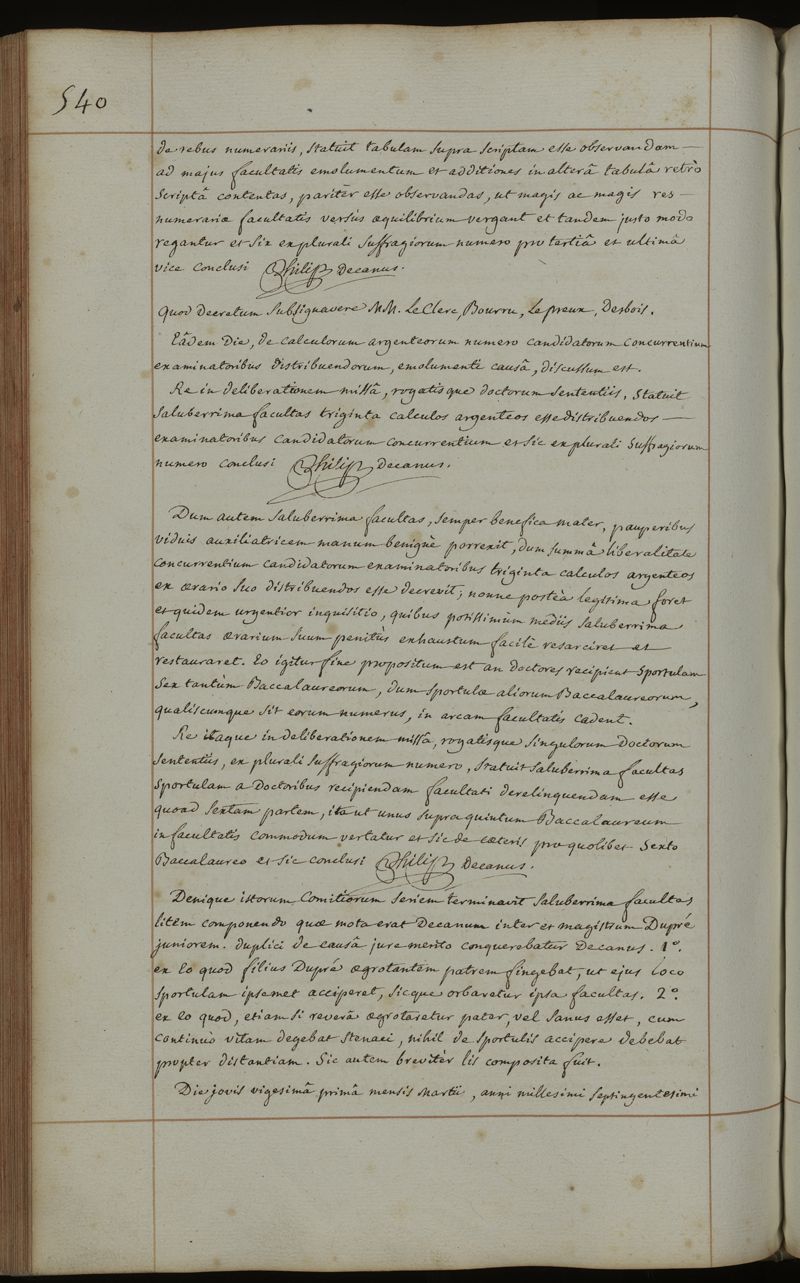 540
de rebus numerariis, Statuit tabulam Supra Scriptam esse observandam —
ad majus facultatis emolumentum et additiones in alterâ tabulâ retrò
Scriptâ contentas, paritèr esse observandas, ut magis ac magis res —
numerariæ facultatis versùs æquilibrium vergant et tandem justo modo
regantur et Sic ex plurali Suffragiorum numero pro tertiâ et ultimâ
vice conclusi Philip Decanus.
Quod Decretum Subsignavere MM. Le Clerc, Bourru, Le preux, Desbois.
Eâdem Die, de calculorum argenteorum numero candidatorum concurrentium
examinatoribus distribuendorum, emolumenti causâ, discussum est.
Re in deliberationem missâ, rogatisque doctorum Sententiis, Statuit
Saluberrima facultas triginta calculos argenteos esse distribuendos —
examinatoribus candidatorum concurrentium et Sic ex plurali Suffragiorum
numero conclusi Philip Decanus.
Dum autem Saluberrima facultas, Semper benefica mater, pauperibus
viduis auxiliatricem manum benignè porrexit, dum Summâ liberalitate
concurrentium candidatorum examinatoribus triginta calculos argenteos
ex ærario Suo distribuendos esse decrevit; nonne posteà legitima foret
et quidem urgentior inquisitio, quibus potissimùm mediis Saluberrima
facultas ærarium Suum penitùs exhaustum facilè resarciret et
restauraret. Eo igitur fine propositum est an Doctores recipient Sportulam
Sex tantùm Baccalaureorum, dum Sportulæ aliorum Baccalaureorum,
qualiscumque Sit eorum numerus, in arcam facultatis cadent.
Re itaque in deliberationem missâ, rogatisque Singulorum Doctorum
Sententiis, ex plurali Suffragiorum numero, Statuit Saluberrima facultas
Sportulam a Doctoribus recipiendam facultati derelinquendam esse
quoad Sextam partem, ita ut unus Supra quintum Baccalaureum
in facultatis commodum vertatur et Sic de cæteris pro quolibet Sexto
Baccalaureo et Sic conclusi Philip Decanus.
Denique istorum Comitiorum Seriem terminavit Saluberrima facultas
litem componendo quæ mota erat Decanum inter et magistrum Dupré
juniorem. duplici de causâ jure merito conquerebatur Decanus. 1º.
ex eo quod filius Dupré ægrotantem patrem fingebat, ut ejus loco
Sportulam ipsemet acciperet, Sicque orbaretur ipsa facultas. 2º.
ex eo quod, etiam Si reverâ ægrotaretur pater, vel Sanus esset, cum
continuò vitam degebat Stenaci, nihil de Sportulis accipere debebat
propter distantiam. Sic autem brevitèr lis composita fuit.
Die jovis vigesimâ primâ mensis Martii, anni millesimi Septingentesimi